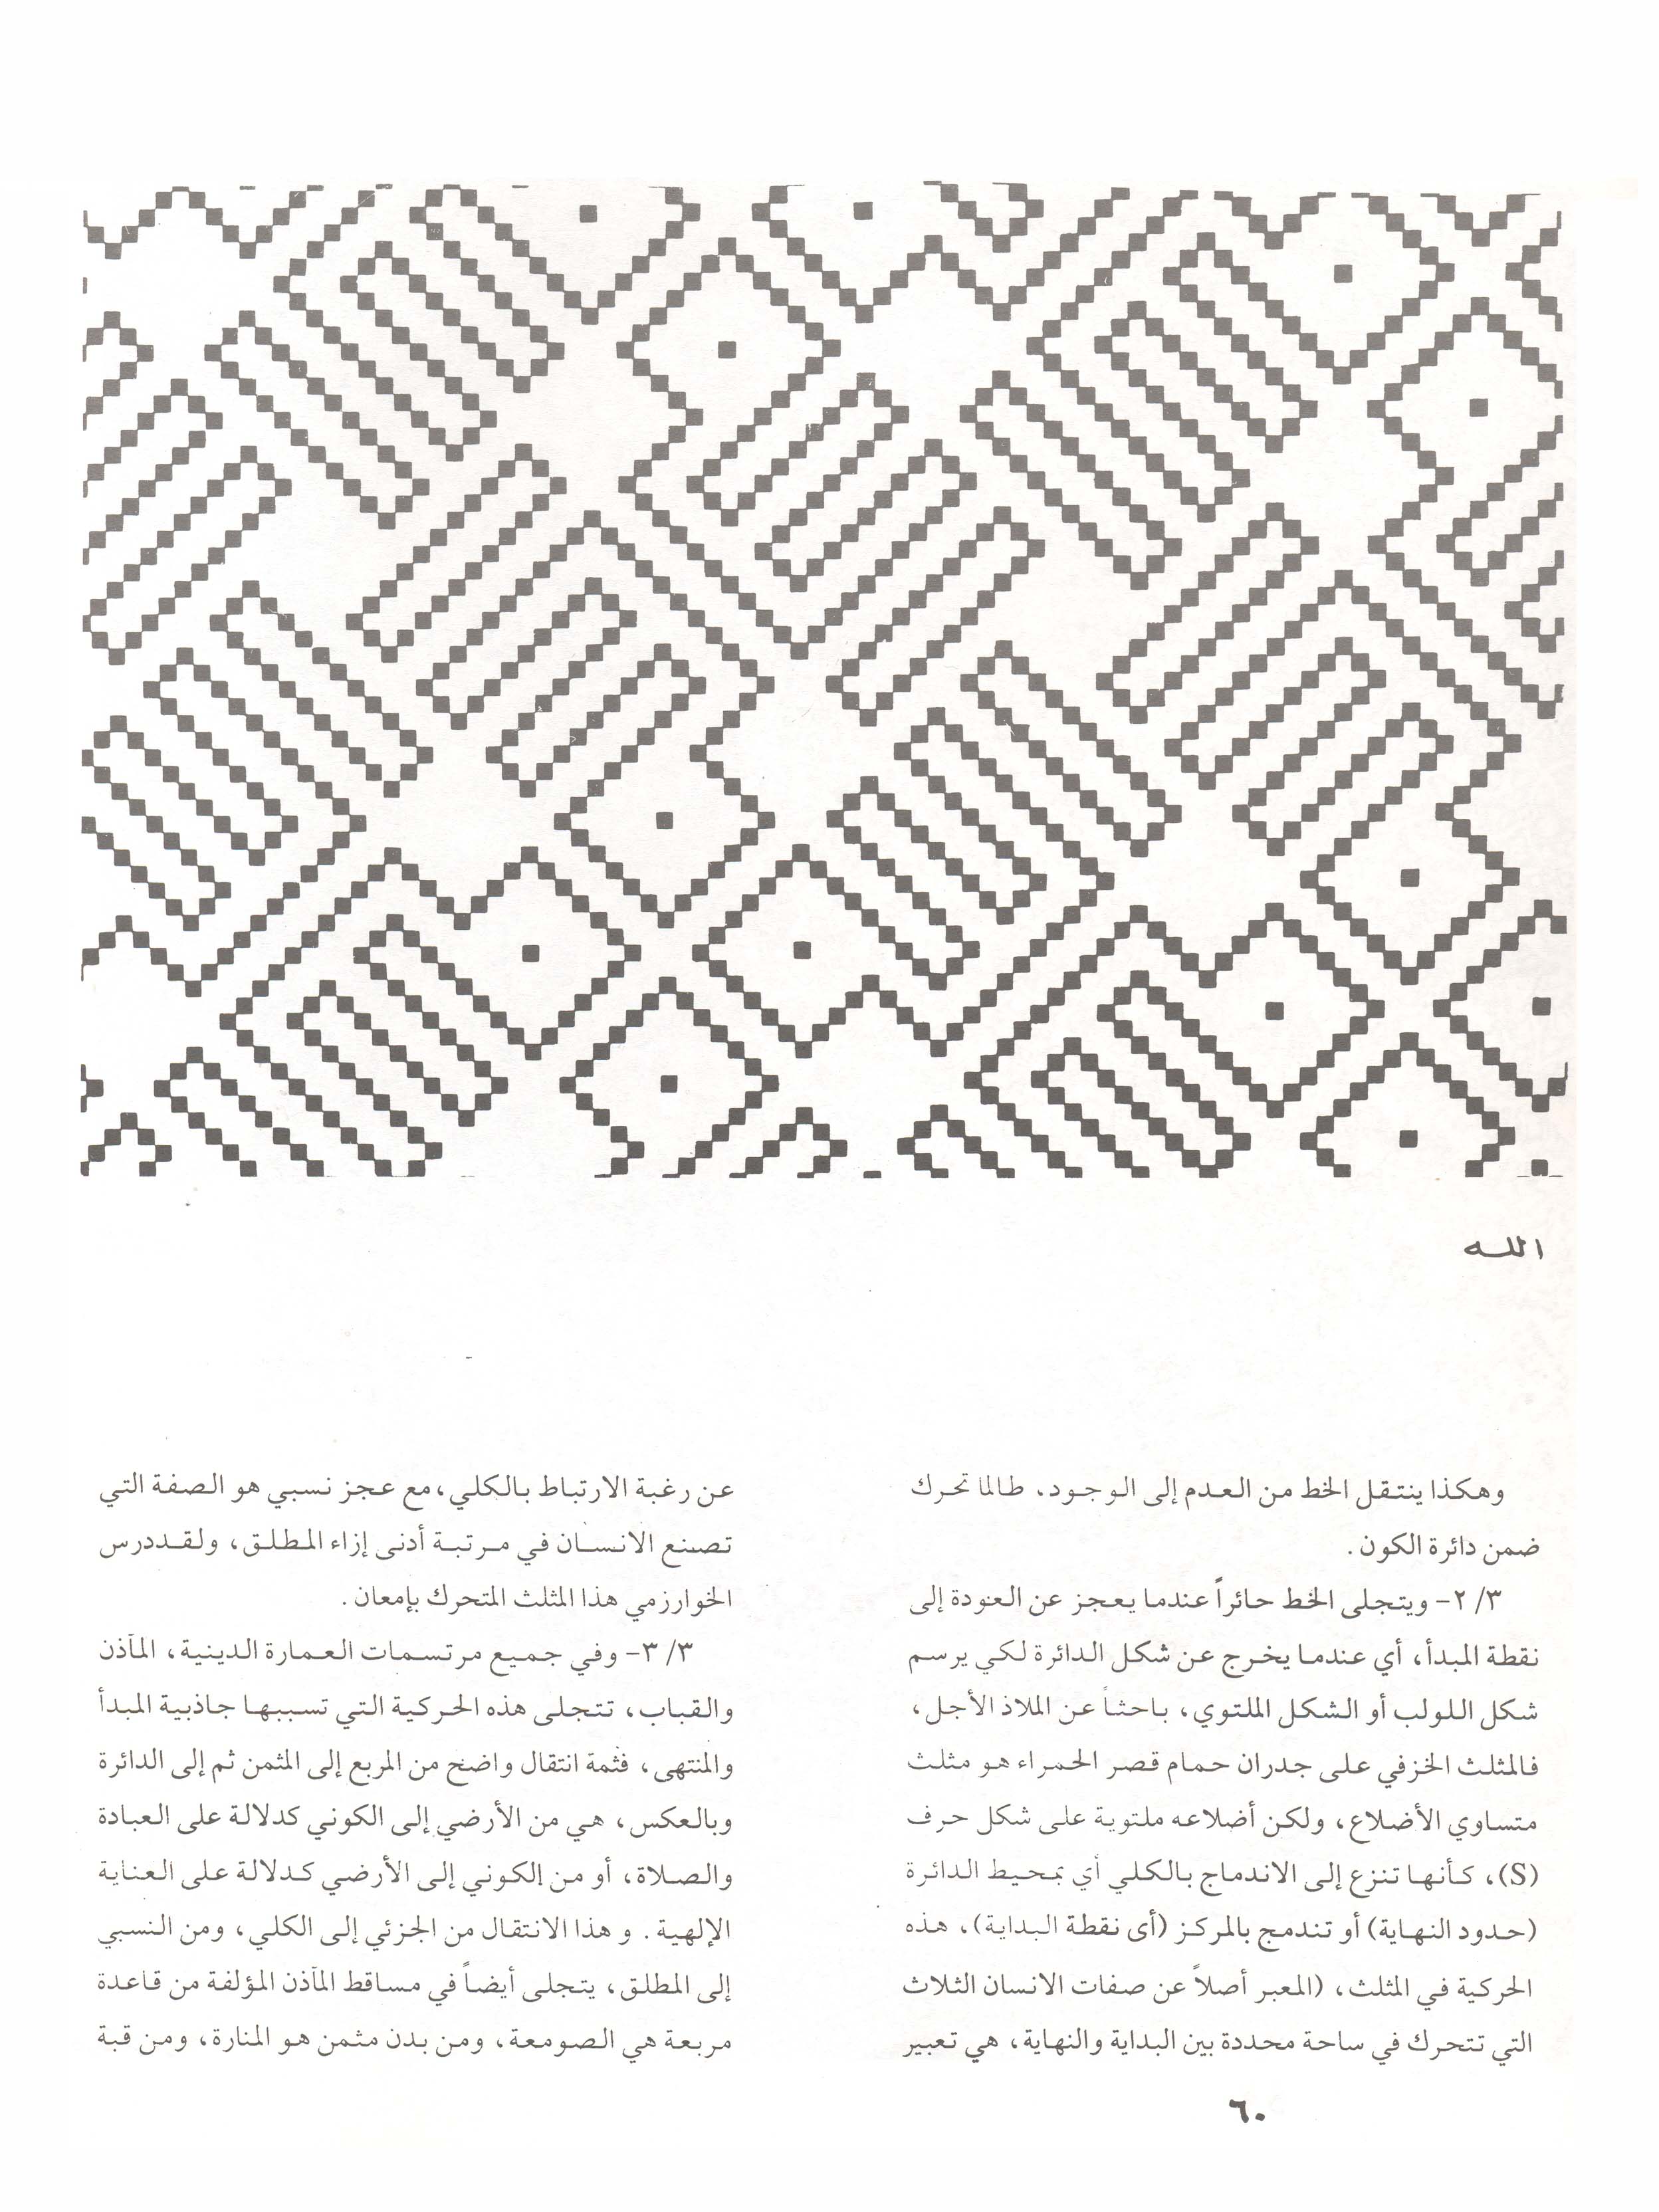 الله
وهكذا ينتقل الخط من العدم إلى الوجود. طالما تحرك
ضمن دائرة الكون.
٢/٣- ويتجلى الخط حائراً عندما يعجز عن العودة إلى
نقطة المبدأ، أي عندما يخرج عن شكل الدائرة لكي يرسم
شكل اللولب أو الشكل الملتوي، باحثاً عن الملاذ الأجل،
فالمثلث الخزفي على جدران حمام قصر الحمراء هو مثلث
متساوي الأضلاع، ولكن أضلاعه ملتوية على شكل حرف
(S)، كأنها تنزع إلى الاندماج بالكلي أي بمحيط الدائرة
(حدود النهاية) أو تندمج بالمركز (أى نقطة البداية)، هذه
الحركية في المثلث، (المعبر أصلاً عن صفات الانسان الثلاث
التي تتحرك في ساحة محددة بين البداية والنهاية، هي تعبير
عن رغبة الارتباط بالكلي، مع عجز نسبي هو الصفة التي
تصنع الانسان في مرتبة أدنى إزاء المطلق، ولقد درس
الخوارزمي هذا المثلث المتحرك بإمعان.
٣/٣- وفي جميع مرتسمات العمارة الدينية، المآذن
والقباب، تتجلى هذه الحركية التي تسببها جاذبية المبدأ
والمنتهى، فثمة انتقال واضح من المربع إلى المثمن ثم إلى الدائرة
وبالعكس، هي من الأرضي إلى الكوني كدلالة على العبادة
والصلاة، أو من الكوني إلى الأرضي كدلالة على العناية
الإلهية. و هذا الانتقال من الجزئي إلى الكلي، ومن النسبي
إلى المطلق، يتجلى أيضاً في مساقط المآذن المؤلفة من قاعدة
مربعة هي الصومعة، ومن بدن مثمن هو المنارة، ومن قبة
٦٠